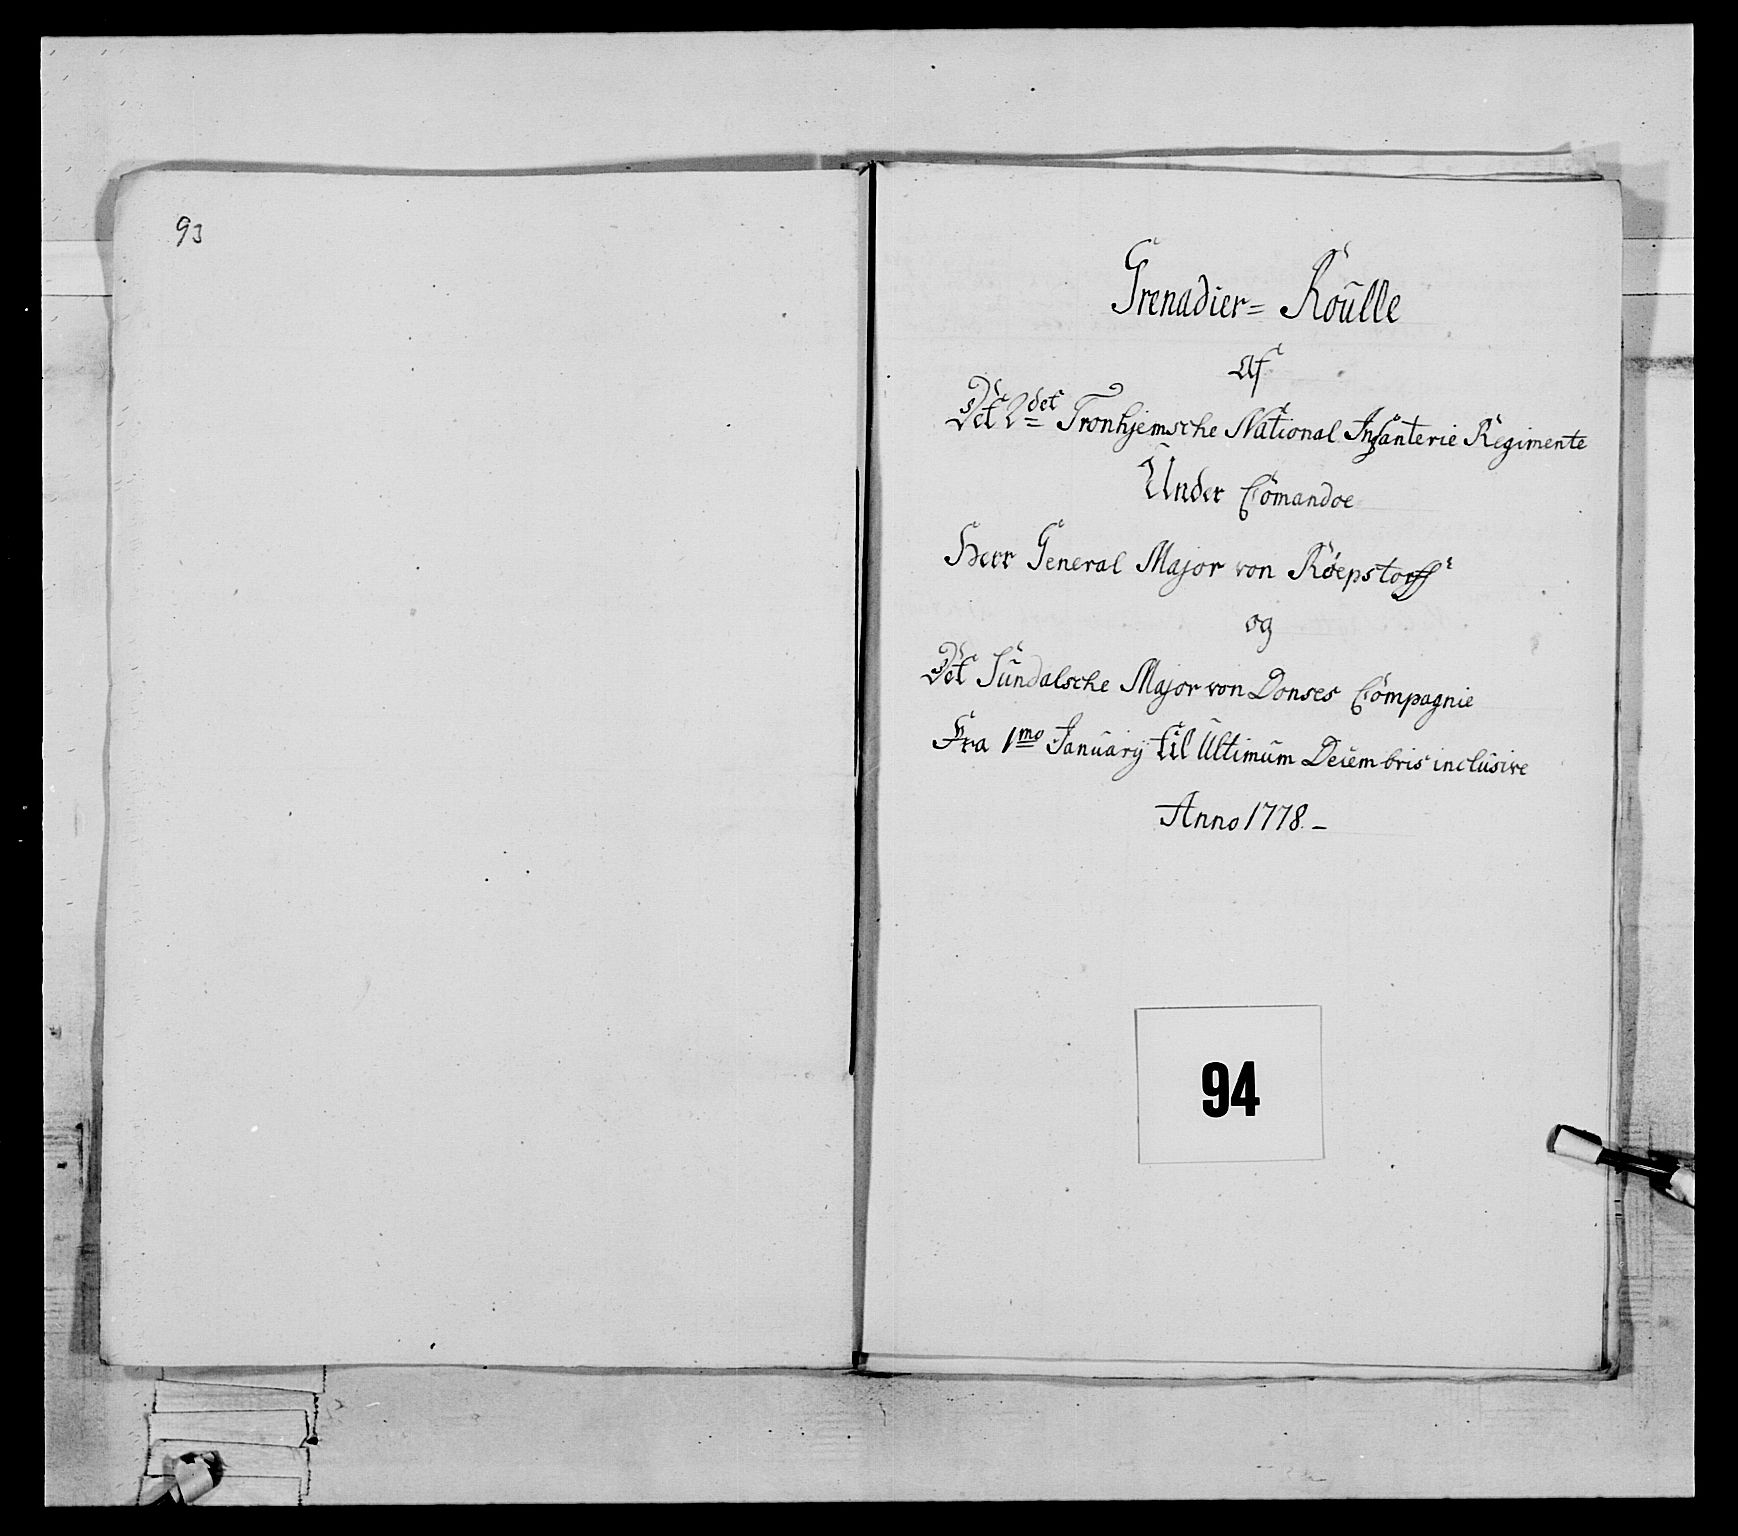 93
Grenadier= Roulle
Af
Det 2det Tronhjemsche National Infanterie Regimente
Under Comandoe
Herr General Major von Röepstorff
og
Det Sundalsche Major von Donses Compagnie
Fra 1mo January til Ultimum Decembris inclusive
Anno 1778. –
94